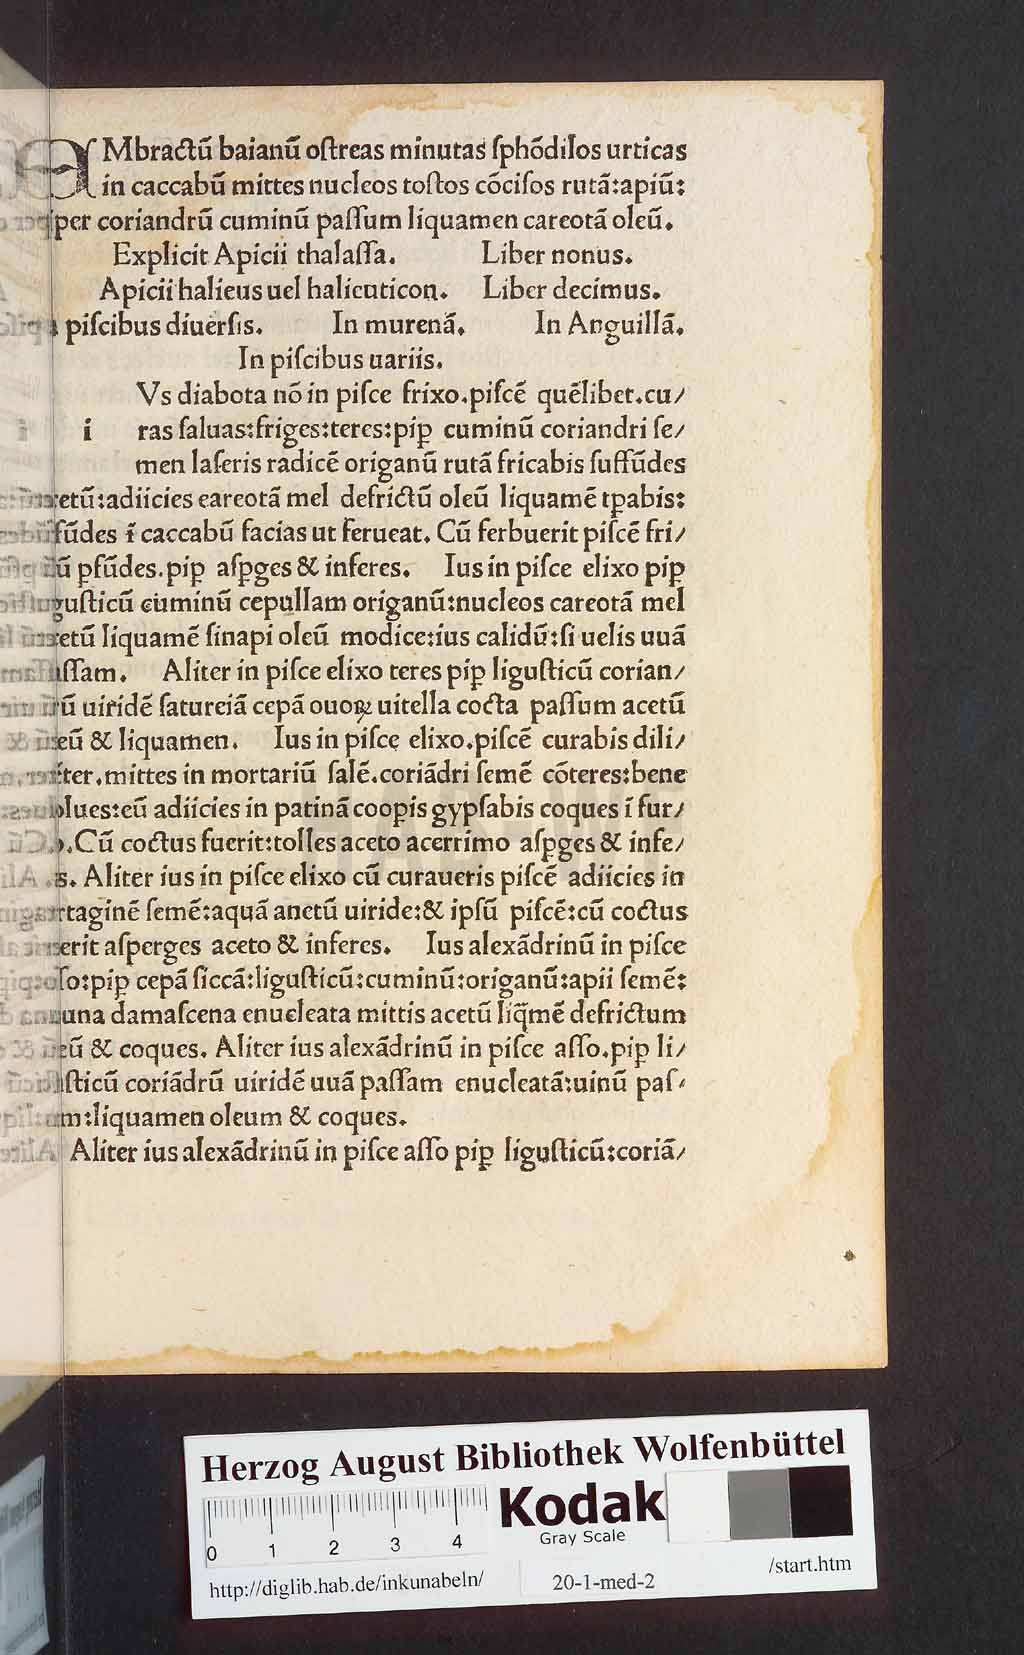 EMbractū baianū oſtreas minutas ſphōdilos urticas
in caccabū mittes nucleos toſtos cōciſos rutā:apiū:
piper coriandrū cuminū paſſum liquamen careotā oleū.
Explicit Apicii thalaſſa. Liber nonus.
Apicii halieus uel halieuticon. Liber decimus.
piſcibus diuerſis. In murenā. In Anguillā.
In piſcibus uariis.
Vs diabota nō in piſce frixo.piſcē quēlibet.cu/
i ras ſaluas:friges:teres:pip̲ cuminū coriandri ſe/
men laſeris radicē origanū rutā fricabis ſuffūdes
etū:adiicies eareotā mel defrictū oleū liquamē tp̲abis:
fūdes ī caccabū facias ut ferueat. Cū ferbuerit piſcē fri/
ū p̲fūdes.pip̲ aſp̲ges & inferes. Ius in piſce elixo pip̲
guſticū cuminū cepullam origanū:nucleos careotā mel
etū liquamē ſinapi oleū modice:ius calidū:ſi uelis uuā
ſſam. Aliter in piſce elixo teres pip̲ liguſticū corian/
rū uiridē ſatureiā cepā ouoꝝ uitella cocta paſſum acetū
eū & liquamen. Ius in piſce elixo.piſcē curabis dili/
ter.mittes in mortariū ſalē.coriādri ſemē cōteres:bene
lues:eū adiicies in patinā coop̲is gypſabis coques ī fur/
.Cū coctus fuerit:tolles aceto acerrimo aſp̲ges & infe/
s. Aliter ius in piſce elixo cū curaueris piſcē adiicies in
rtaginē ſemē:aquā anetū uiride:& ipſū piſcē:cū coctus
erit aſperges aceto & inferes. Ius alexādrinū in piſce
ſo:pip̲ cepā ſiccā:liguſticū:cuminū:origanū:apii ſemē:
una damaſcena enucleata mittis acetū liq̄mē defrictum
eū & coques. Aliter ius alexādrinū in piſce aſſo.pip̲ li/
ſticū coriādrū uiridē uuā paſſam enucleatā:uinū paſ/
m:liquamen oleum & coques.
Aliter ius alexādrinū in piſce aſſo pip̲ liguſticū:coriā/
HAB-WF
Herzog August Bibliothek Wolfenbüttel
Kodak
Gray Scale
0 1 2 3 4
http://diglib.hab.de/inkunabeln/ 20-1-med-2 /start.htm